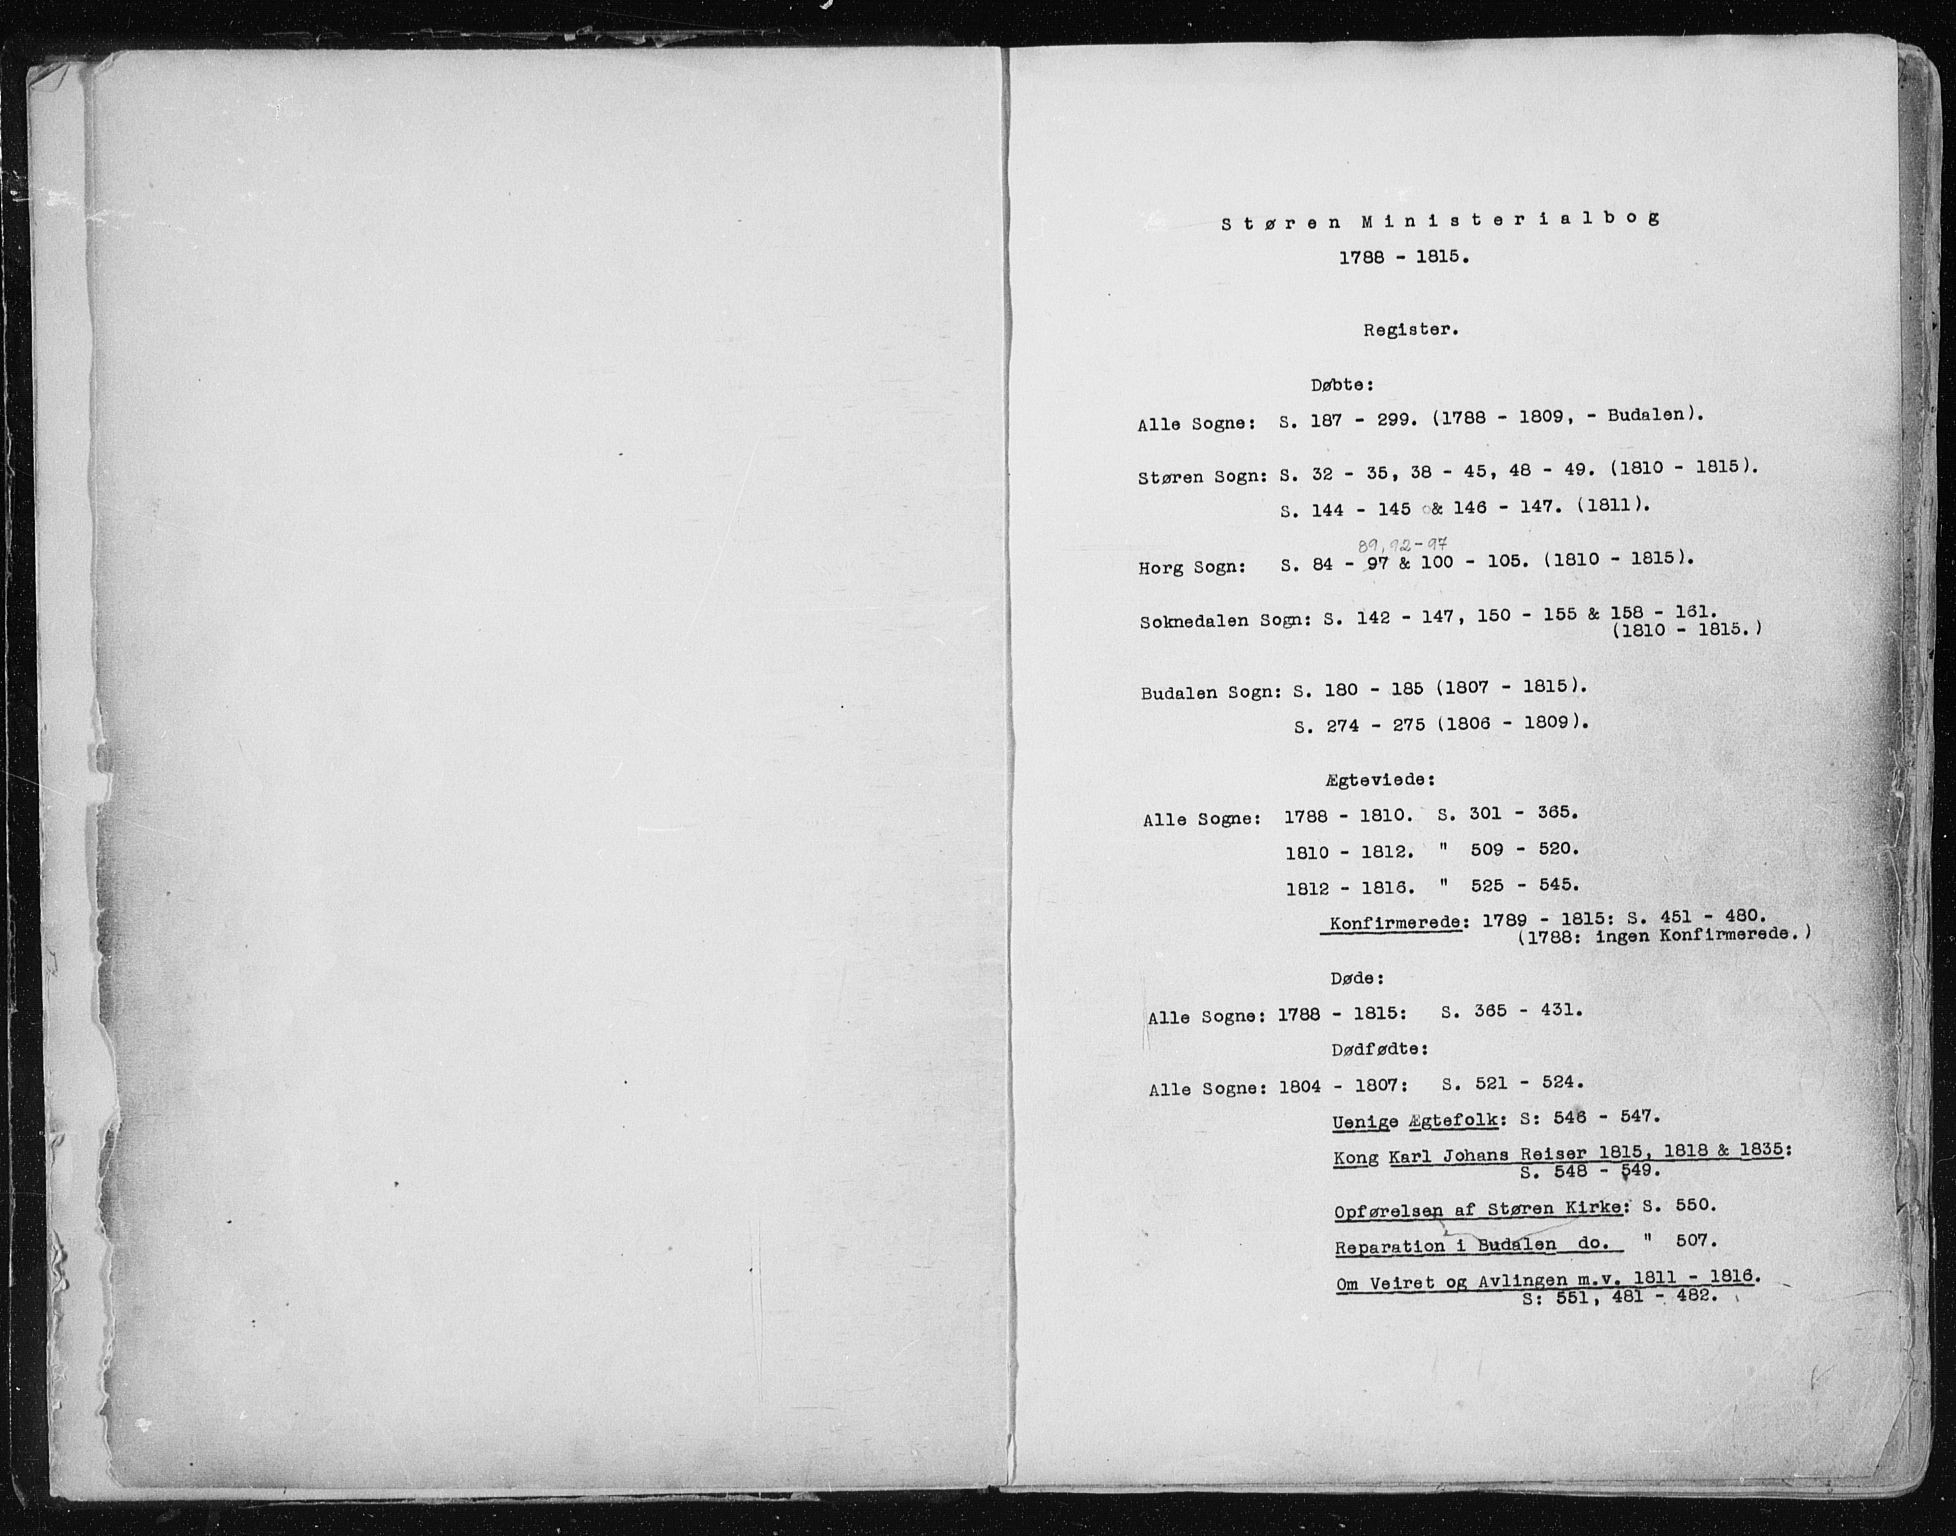 Støren Ministerialbog
1788 - 1815.
Register.
Døbte:
Alle Sogne: S. 187 - 299. (1788 - 1809, - Budalen).
Støren Sogn: S. 32 - 35, 38 - 45, 48 - 49. (1810 - 1815).
S. 144 - 145 & 146 - 147. (1811).
89, 92-97
Horg Sogn: S. 84 - 97 & 100 - 105. (1810 - 1815).
Soknedalen Sogn: S. 142 - 147, 150 - 155 & 158 - 161.
(1810 - 1815.)
Budalen Sogn: S. 180 - 185 (1807 - 1815).
S. 274 - 275 (1806 - 1809).
Ægteviede:
Alle Sogne: 1788 - 1810. S. 301 - 365.
1810 - 1812. " 509 - 520.
1812 - 1816. " 525 - 545.
Konfirmerede: 1789 - 1815: S. 451 - 480.
(1788: ingen Konfirmerede.)
Døde:
Alle Sogne: 1788 - 1815: S. 365 - 431.
Dødfødte:
Alle Sogne: 1804 - 1807: S. 521 - 524.
Uenige Ægtefolk: S: 546 - 547.
Kong Karl Johans Reiser 1815, 1818 & 1835:
S. 548 - 549.
Opførelsen af Støren Kirke: S. 550.
Reparation i Budalen do. " 507.
Om Veiret og Avlingen m.v. 1811 - 1816.
S: 551, 481 - 482.